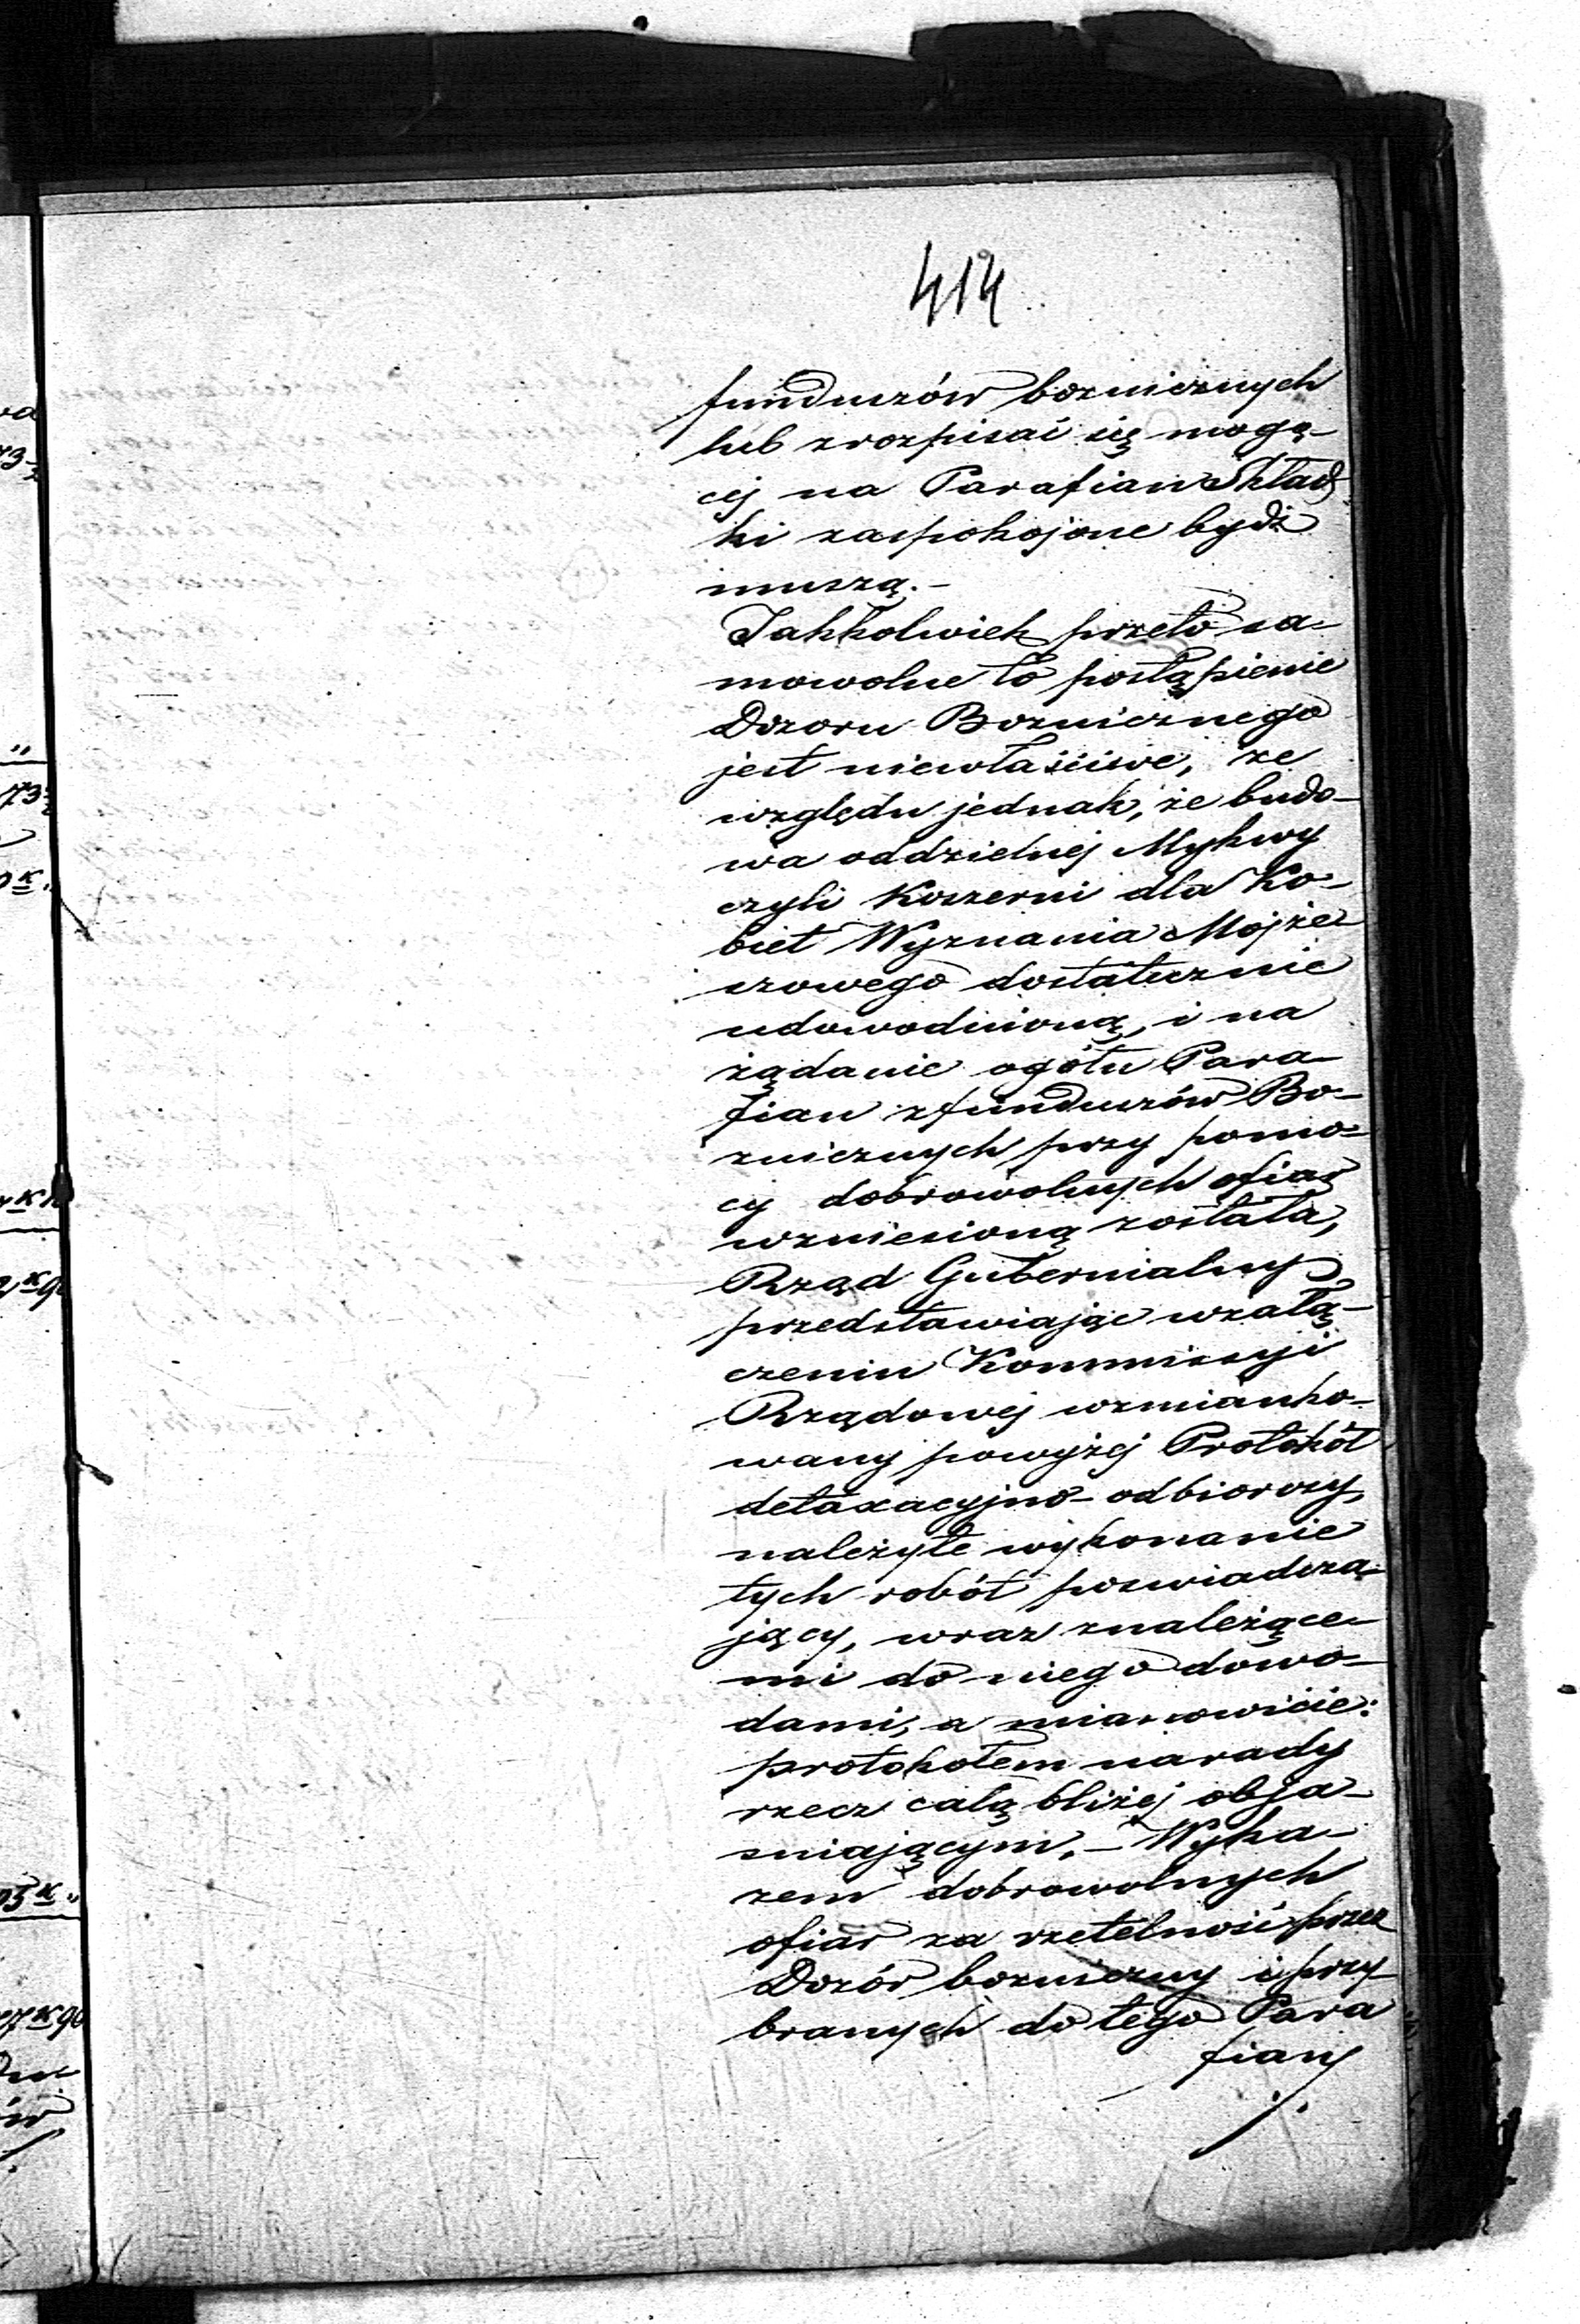 414
funduszów bożnicznych
lub z rozpisać się mogą-
cej na Parafian Skład-
ki zaspokojone bydź
muszą.-
Jakkolwiek przeto sa-
mowolne to postąpienie
Dozoru Bożnicznego
jest niewłaściwe, ze
względu jednak, że budo-
wa oddzielnej Mykwy
czyli Koszerni dla Ko-
biet Wyznania Mojże-
szowego dostatecznie
udowodnioną, i na
żądanie ogółu Para-
fian z funduszów Bo-
żnicznych przy pomo-
cy dobrowolnych ofiar
wzniesioną została,
Rząd Gubernialny
przedstawiając w załą-
czeniu Kommissyi
Rządowej wzmianko-
wany powyżej Protokół
detaxacyjno-odbiorczy,
należyte wykonanie
tych robót poswiadcza-
jący, wraz z należące-
mi do niego dowo-
dami, a mianowicie:
protokołem narady
rzecz całą bliżej obja-
sniającym,- Wyka-
zem dobrowolnych
ofiar za rzetelność przez
Dozór bożniczny i przy-
branych do tego Para
fiany
73
"
73
0 K.
K
K 9
95 K "
7 K 90